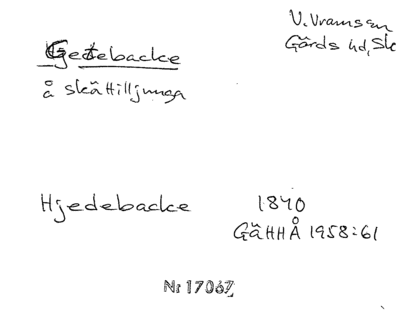 V. Vrams sn
Gärds hd, Sk
Getebacke
å Skättilljunga
Hjedebacke 1840
GäHHÅ 1958:61
Nr 17067